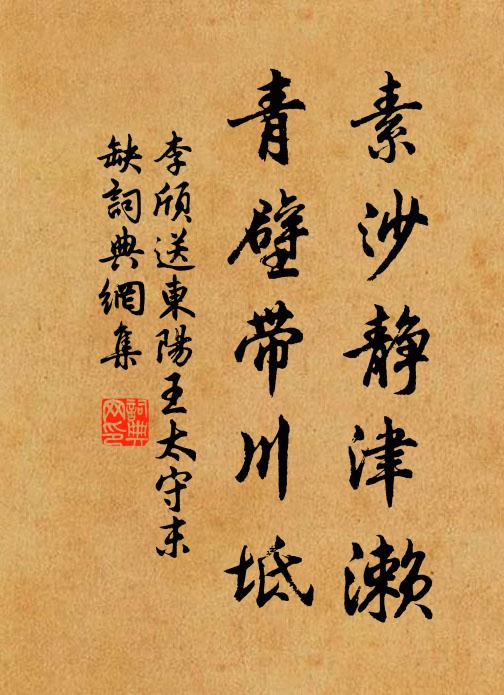 素沙静津濑
青壁带川坻
李颀送東陽王太守末
缺詞典網集
詞典網印